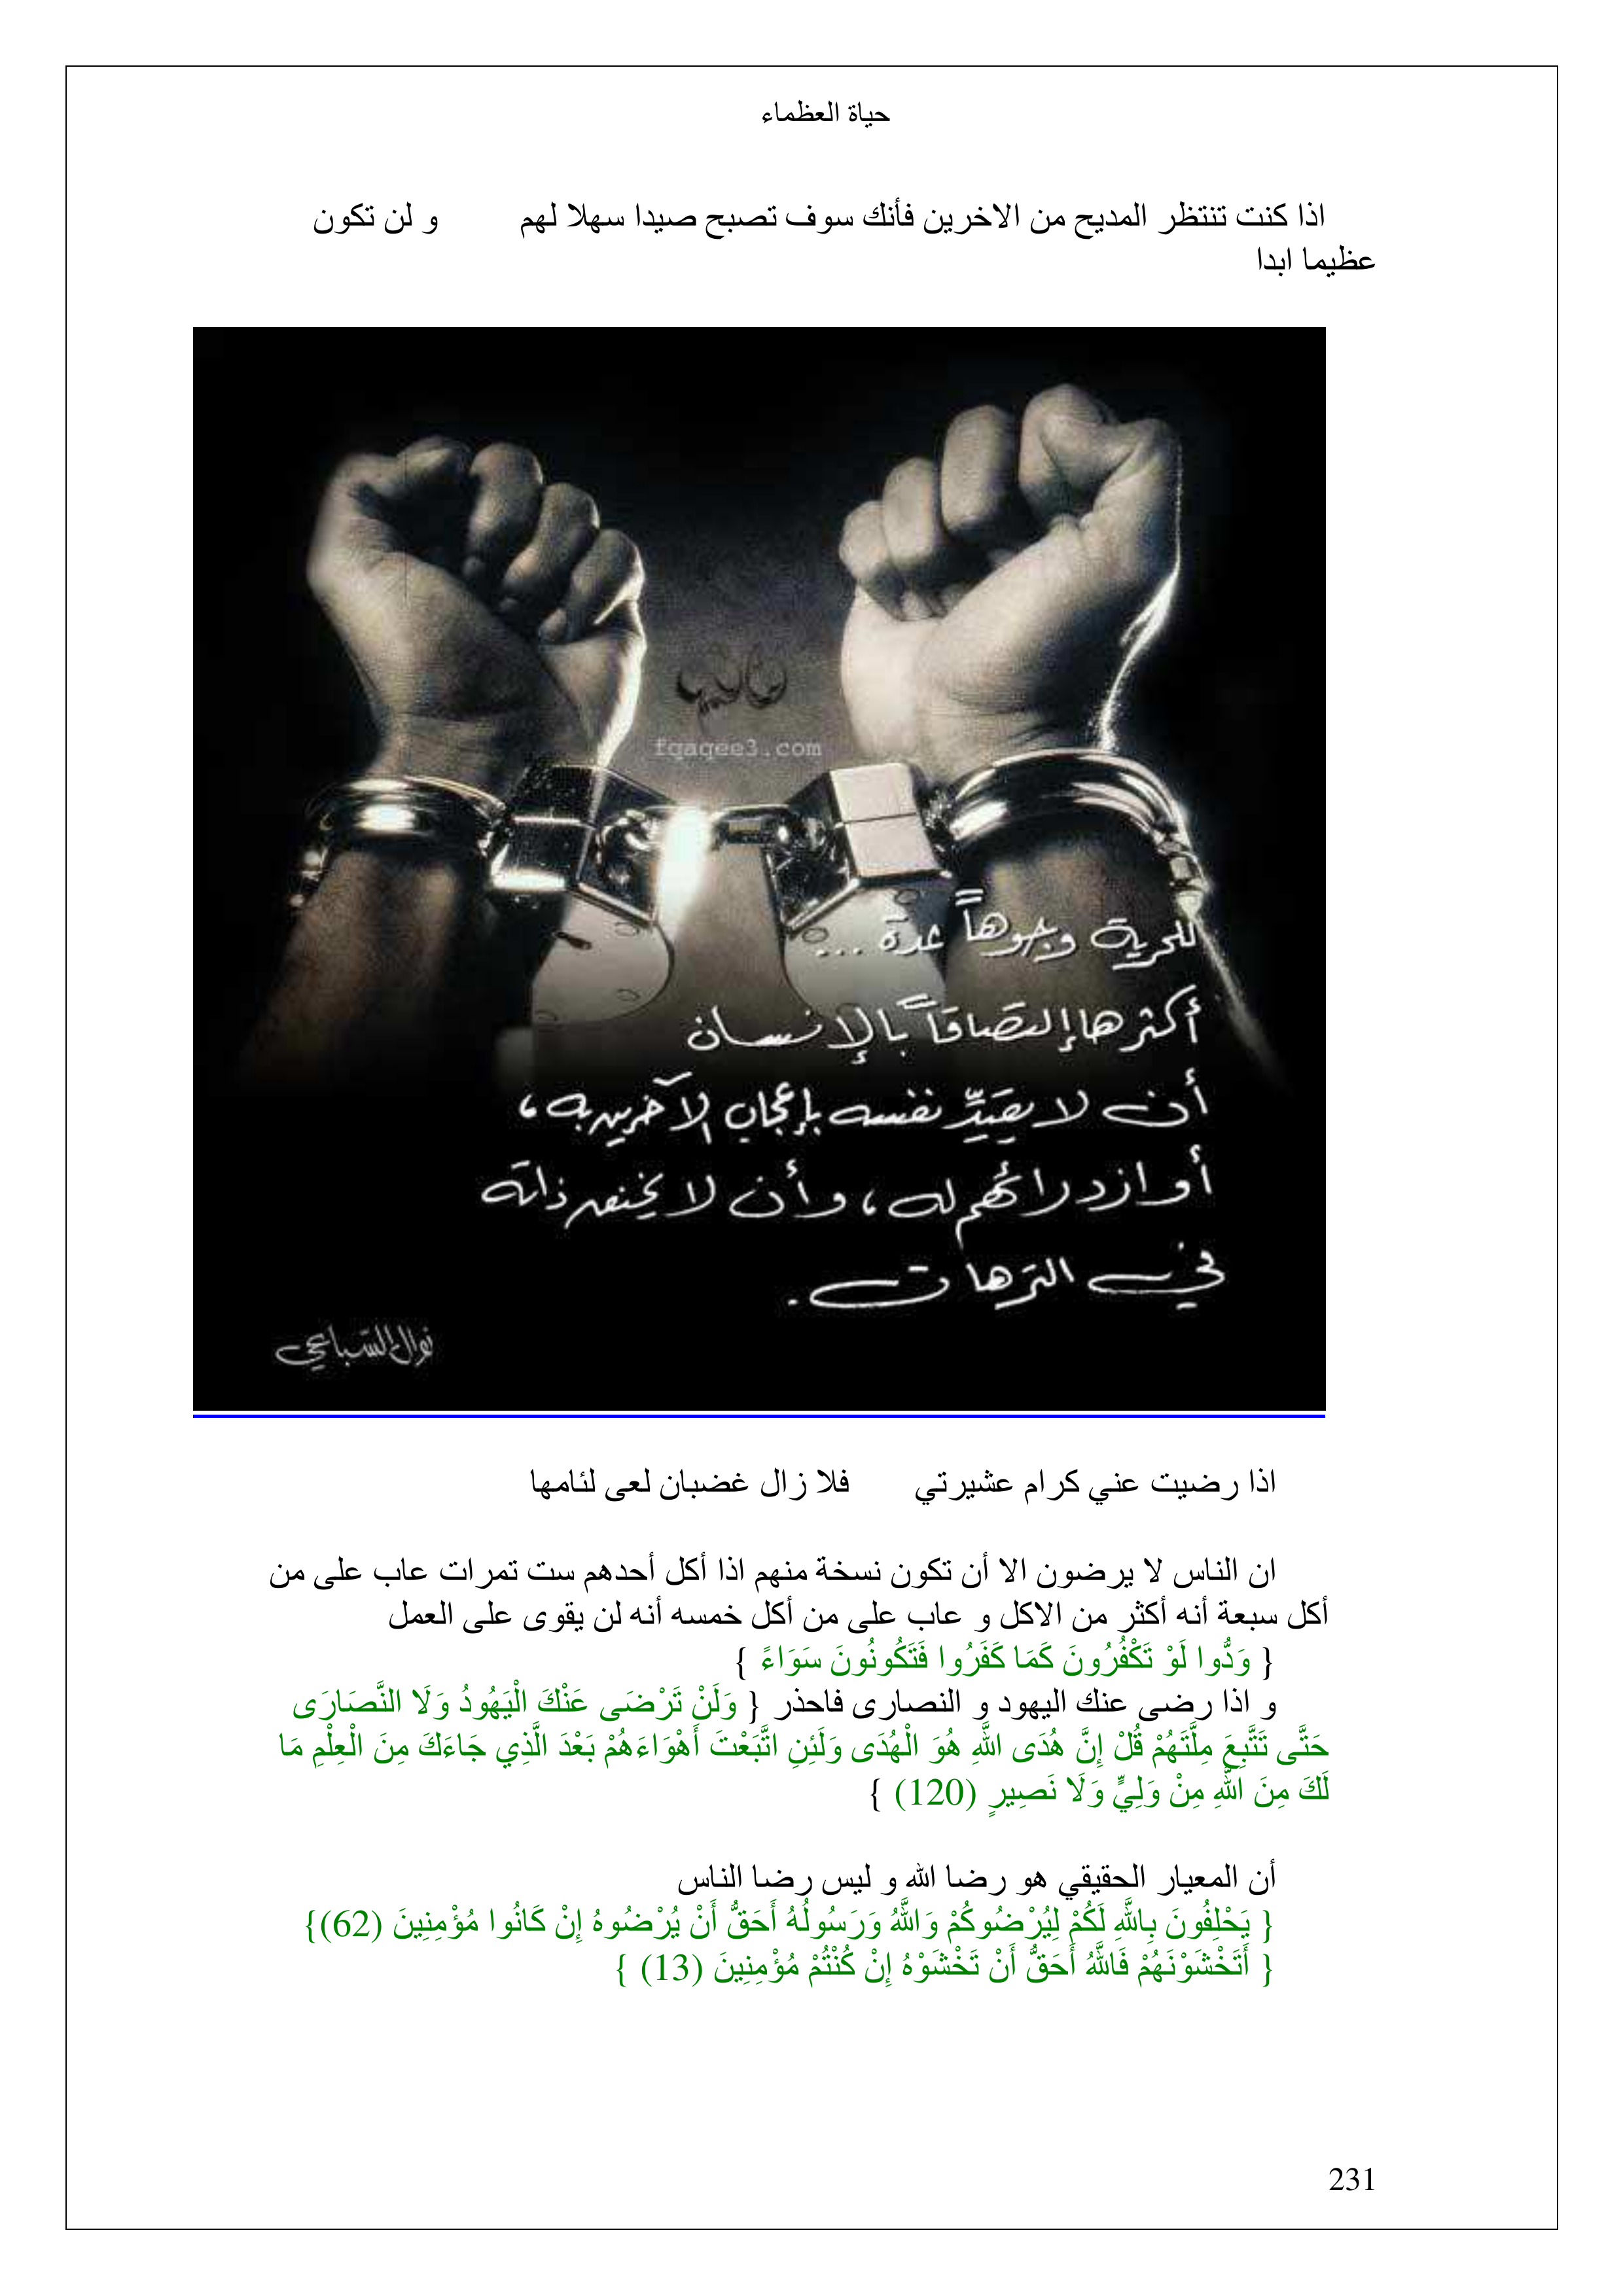 حياة العظماء
اذا كنت تنتظر المديح من الاخرين فأنك سوف تصبح صيدا سهلا لهم و لن تكون
عظيما ابدا
fqaqee3.com
للحرية وجوهاً عدة ...
أكثرها إلتصاقاً بالإنسان
أن لا يقيِّد نفسه بإعجاب الآخرين به ،
أو ازدرائهم له ، وأن لا يختصر ذاته
في الترهات .
نوال السباعي
اذا رضيت عني كرام عشيرتي فلا زال غضبان لعى لئامها
ان الناس لا يرضون الا أن تكون نسخة منهم اذا أكل أحدهم ست تمرات عاب على من
أكل سبعة أنه أكثر من الاكل و عاب على من أكل خمسه أنه لن يقوى على العمل
{ وَدُّوا لَوْ تَكْفُرُونَ كَمَا كَفَرُوا فَتَكُونُونَ سَوَاءً }
و اذا رضى عنك اليهود و النصارى فاحذر { وَلَنْ تَرْضَى عَنْكَ الْيَهُودُ وَلَا النَّصَارَى
حَتَّى تَتَّبِعَ مِلَّتَهُمْ قُلْ إِنَّ هُدَى اللَّهِ هُوَ الْهُدَى وَلَئِنِ اتَّبَعْتَ أَهْوَاءَهُمْ بَعْدَ الَّذِي جَاءَكَ مِنَ الْعِلْمِ مَا
لَكَ مِنَ اللَّهِ مِنْ وَلِيٍّ وَلَا نَصِيرٍ (120) }
أن المعيار الحقيقي هو رضا الله و ليس رضا الناس
{ يَحْلِفُونَ بِاللَّهِ لَكُمْ لِيُرْضُوكُمْ وَاللَّهُ وَرَسُولُهُ أَحَقُّ أَنْ يُرْضُوهُ إِنْ كَانُوا مُؤْمِنِينَ (62)}
{ أَتَخْشَوْنَهُمْ فَاللَّهُ أَحَقُّ أَنْ تَخْشَوْهُ إِنْ كُنْتُمْ مُؤْمِنِينَ (13) }
231